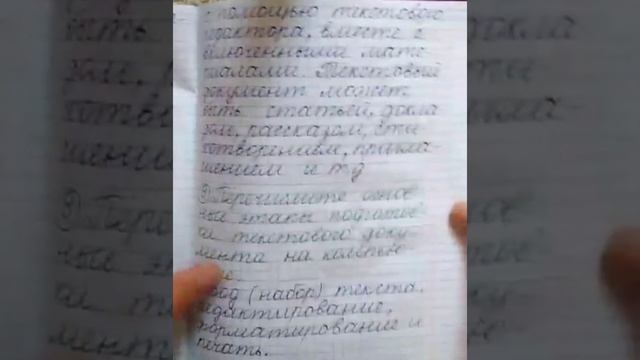 с помощью текстового
редактора, вместе с
включенными мате
риалами. Текстовый
документ может
быть статьей, докла
дом, рассказом, сти
хотворением, пригла-
шением и т д
Перечислите основ
ные этапы подготов
ки текстового доку-
мента на компью
Ввод (набор) текста.
редактирование,
форматирование и
печать.